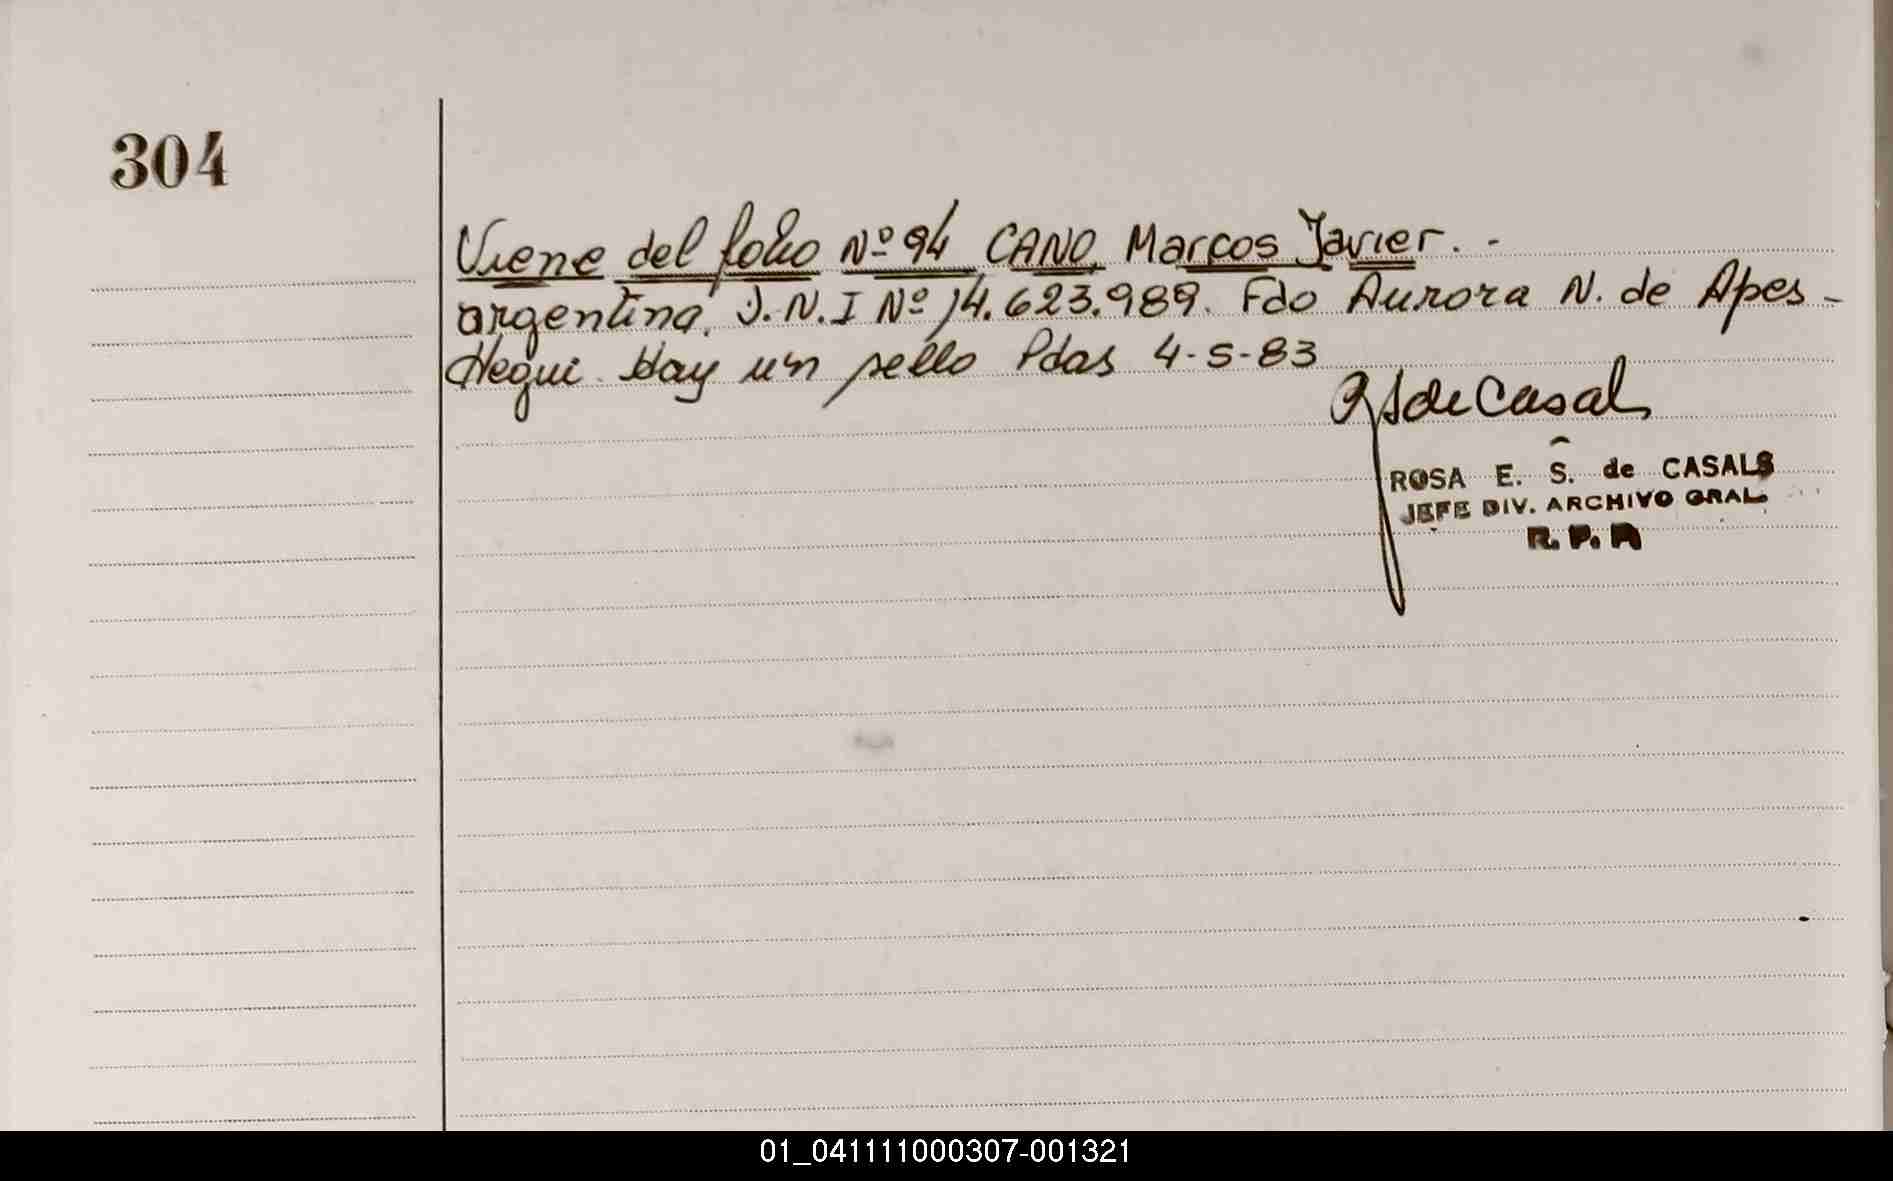 304
Viene del folio Nº 94 CANO, Marcos Javier. -
argentina, D.N.I Nº 14.623.989. Fdo Aurora N. de Apes -
tegui. Hay un sello Pdas 4-5-83
RSdeCasals
ROSA E. S. de CASALS
JEFE DIV. ARCHIVO GRAL.
R. P. P.
01_041111000307-001321